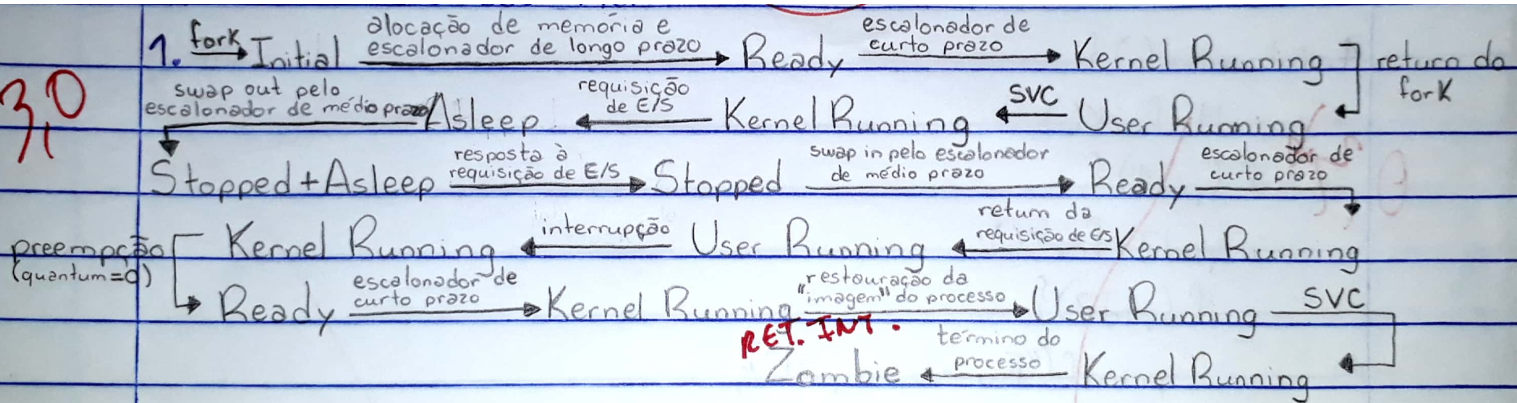 1. fork Initial alocação de memória e escalonador de longo prazo Ready escalonador de curto prazo Kernel Running return do fork
3,0
swap out pelo escalonador de médio prazo Asleep requisição de E/S Kernel Running SVC User Running
Stopped+Asleep resposta à requisição de E/S Stopped swap in pelo escalonador de médio prazo Ready escalonador de curto prazo
preempção (quantum=0) Kernel Running interrupção User Running return da requisição de E/S Kernel Running
Ready escalonador de curto prazo Kernel Running restauração da "imagem" do processo User Running SVC
RET. INT.
Zombie término do processo Kernel Running